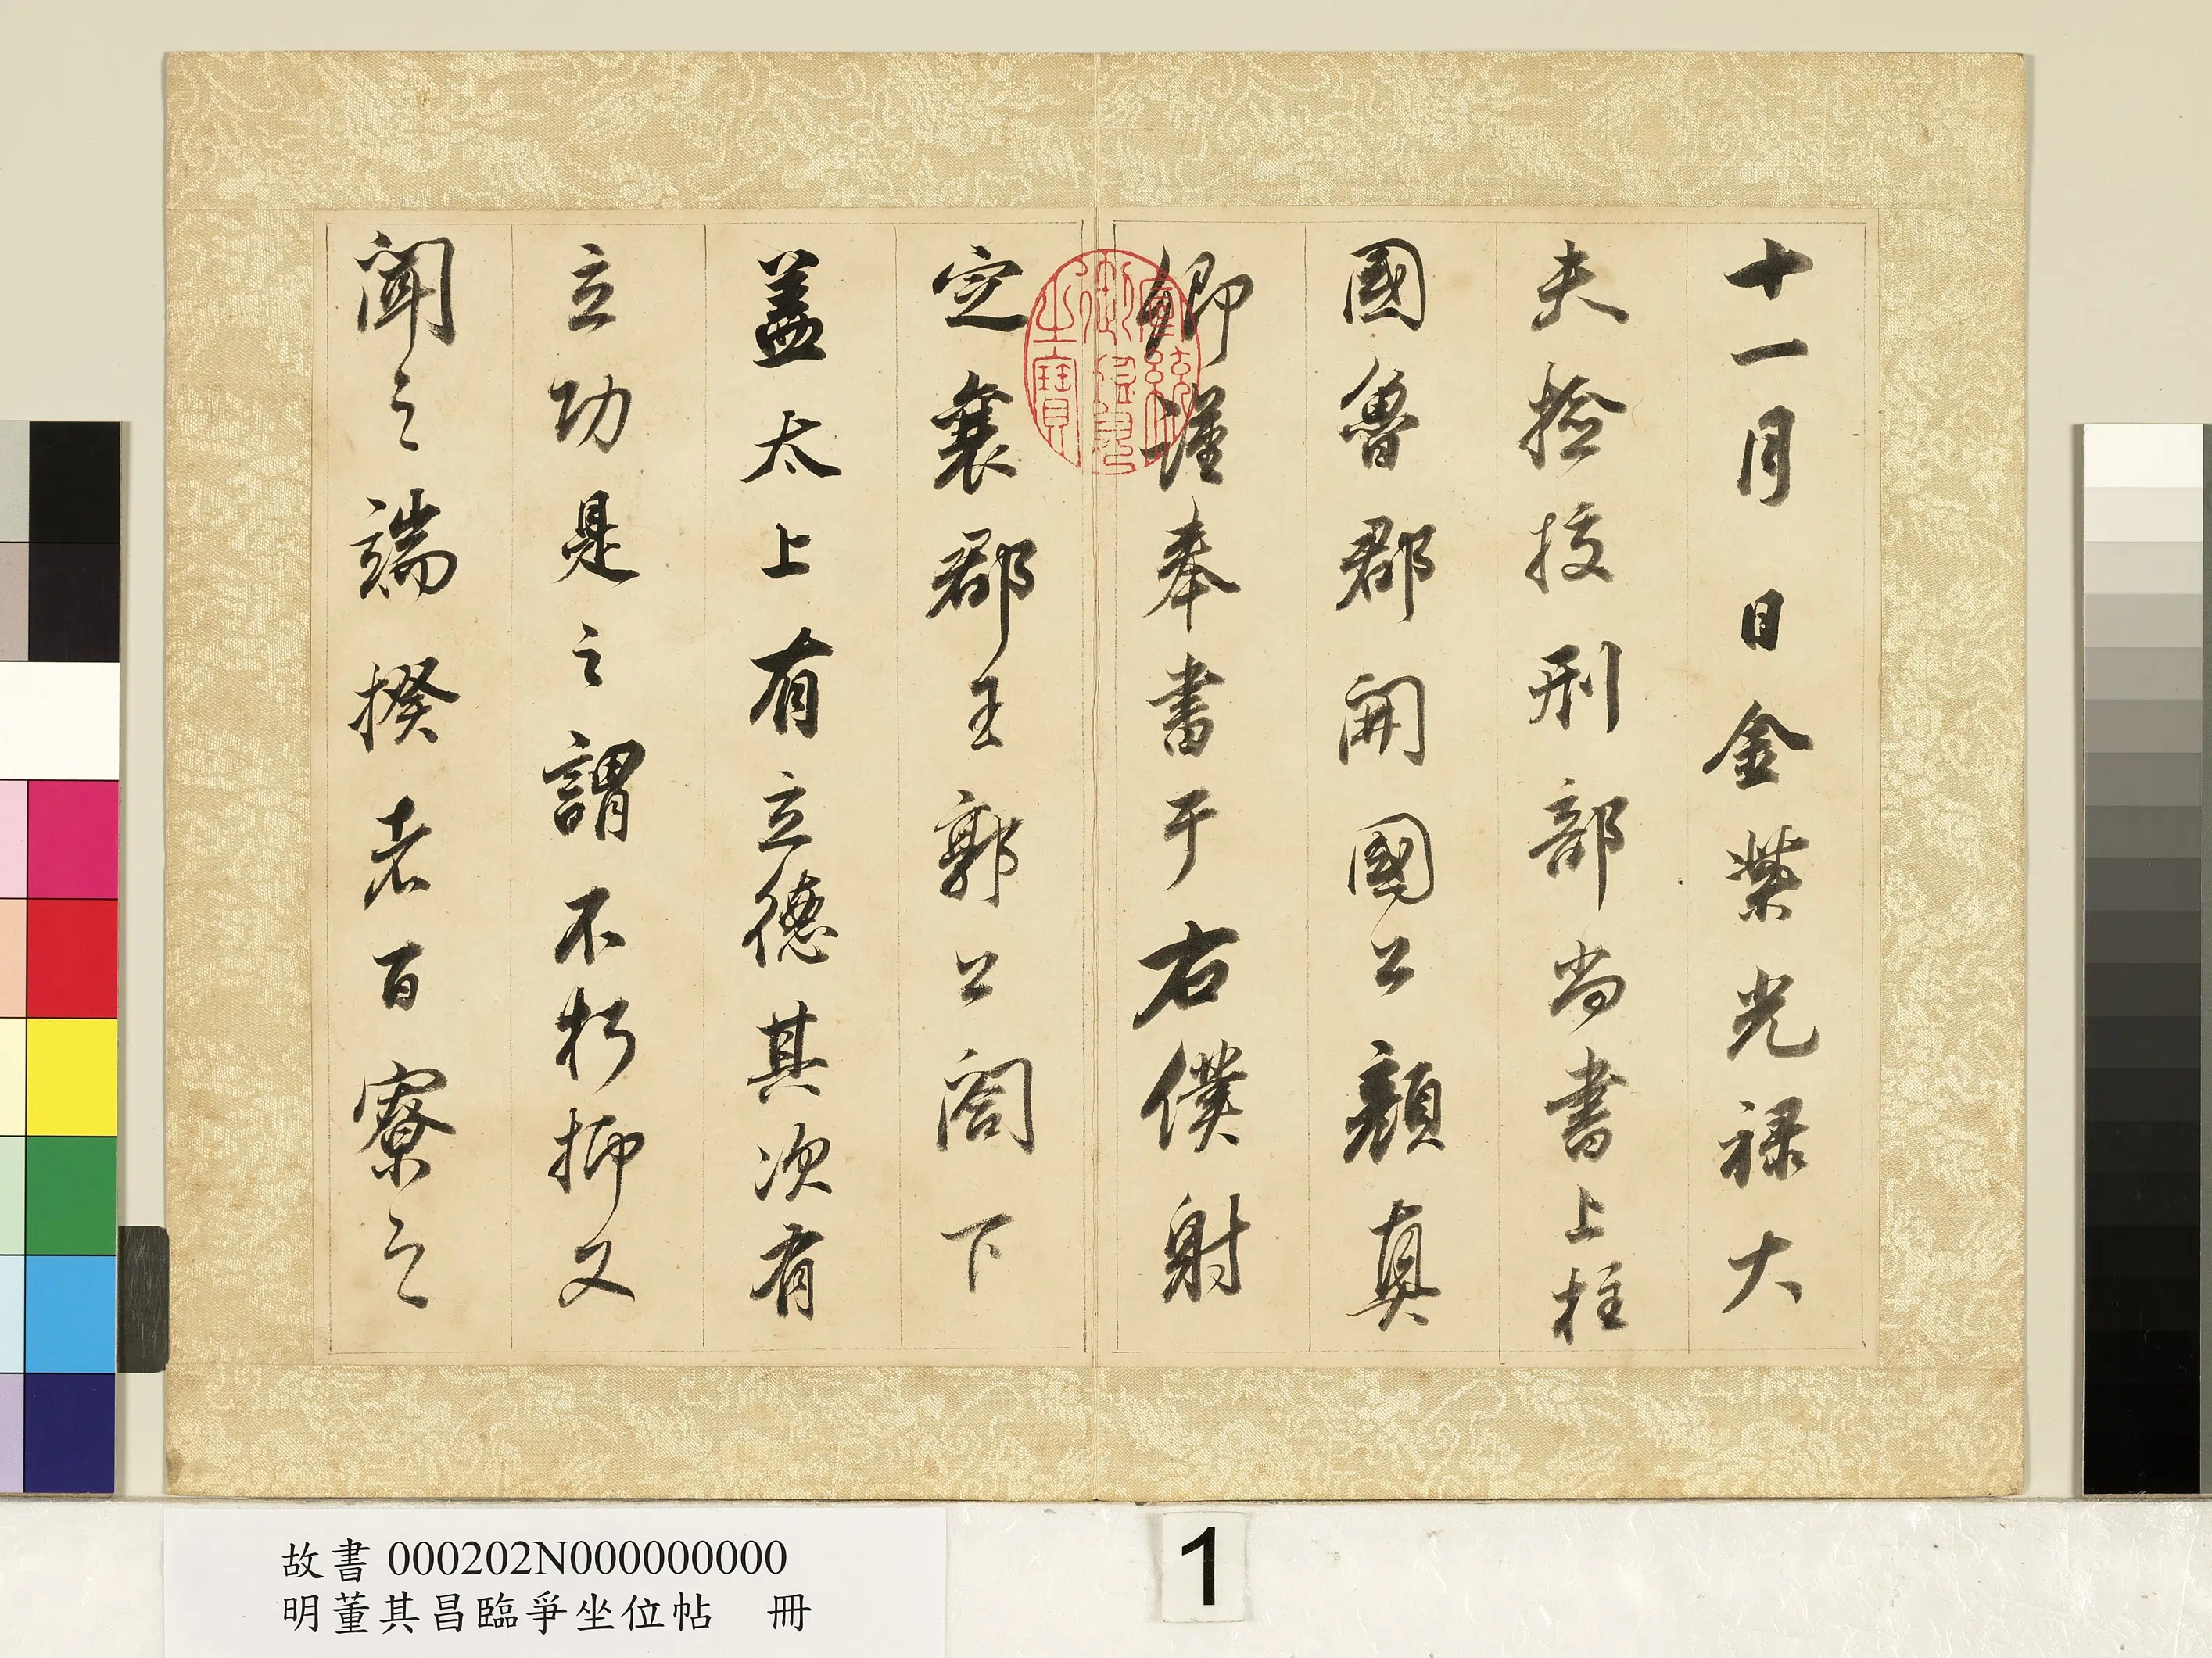 十一月　日金紫光祿大
夫撿挍刑部尚書上柱
國魯郡開國公顏真
卿謹奉書于右僕射
定襄郡王郭公閤下
蓋太上有立德其次有
立功是之謂不朽抑又
聞之端揆者百寮之
宣統御覽之寶
故書000202N000000000
明董其昌臨爭坐位帖　冊
1